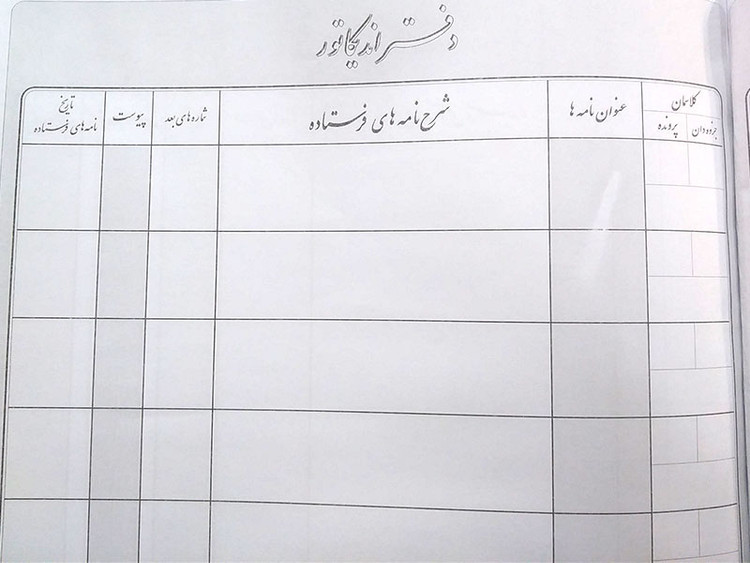 دفتر اندیکاتور
کلاسمان
جزوه دان
پرونده
عنوان نامه ها
شرح نامه های فرستاده
شماره های بعد
پیوست
تاریخ
نامه های فرستاده